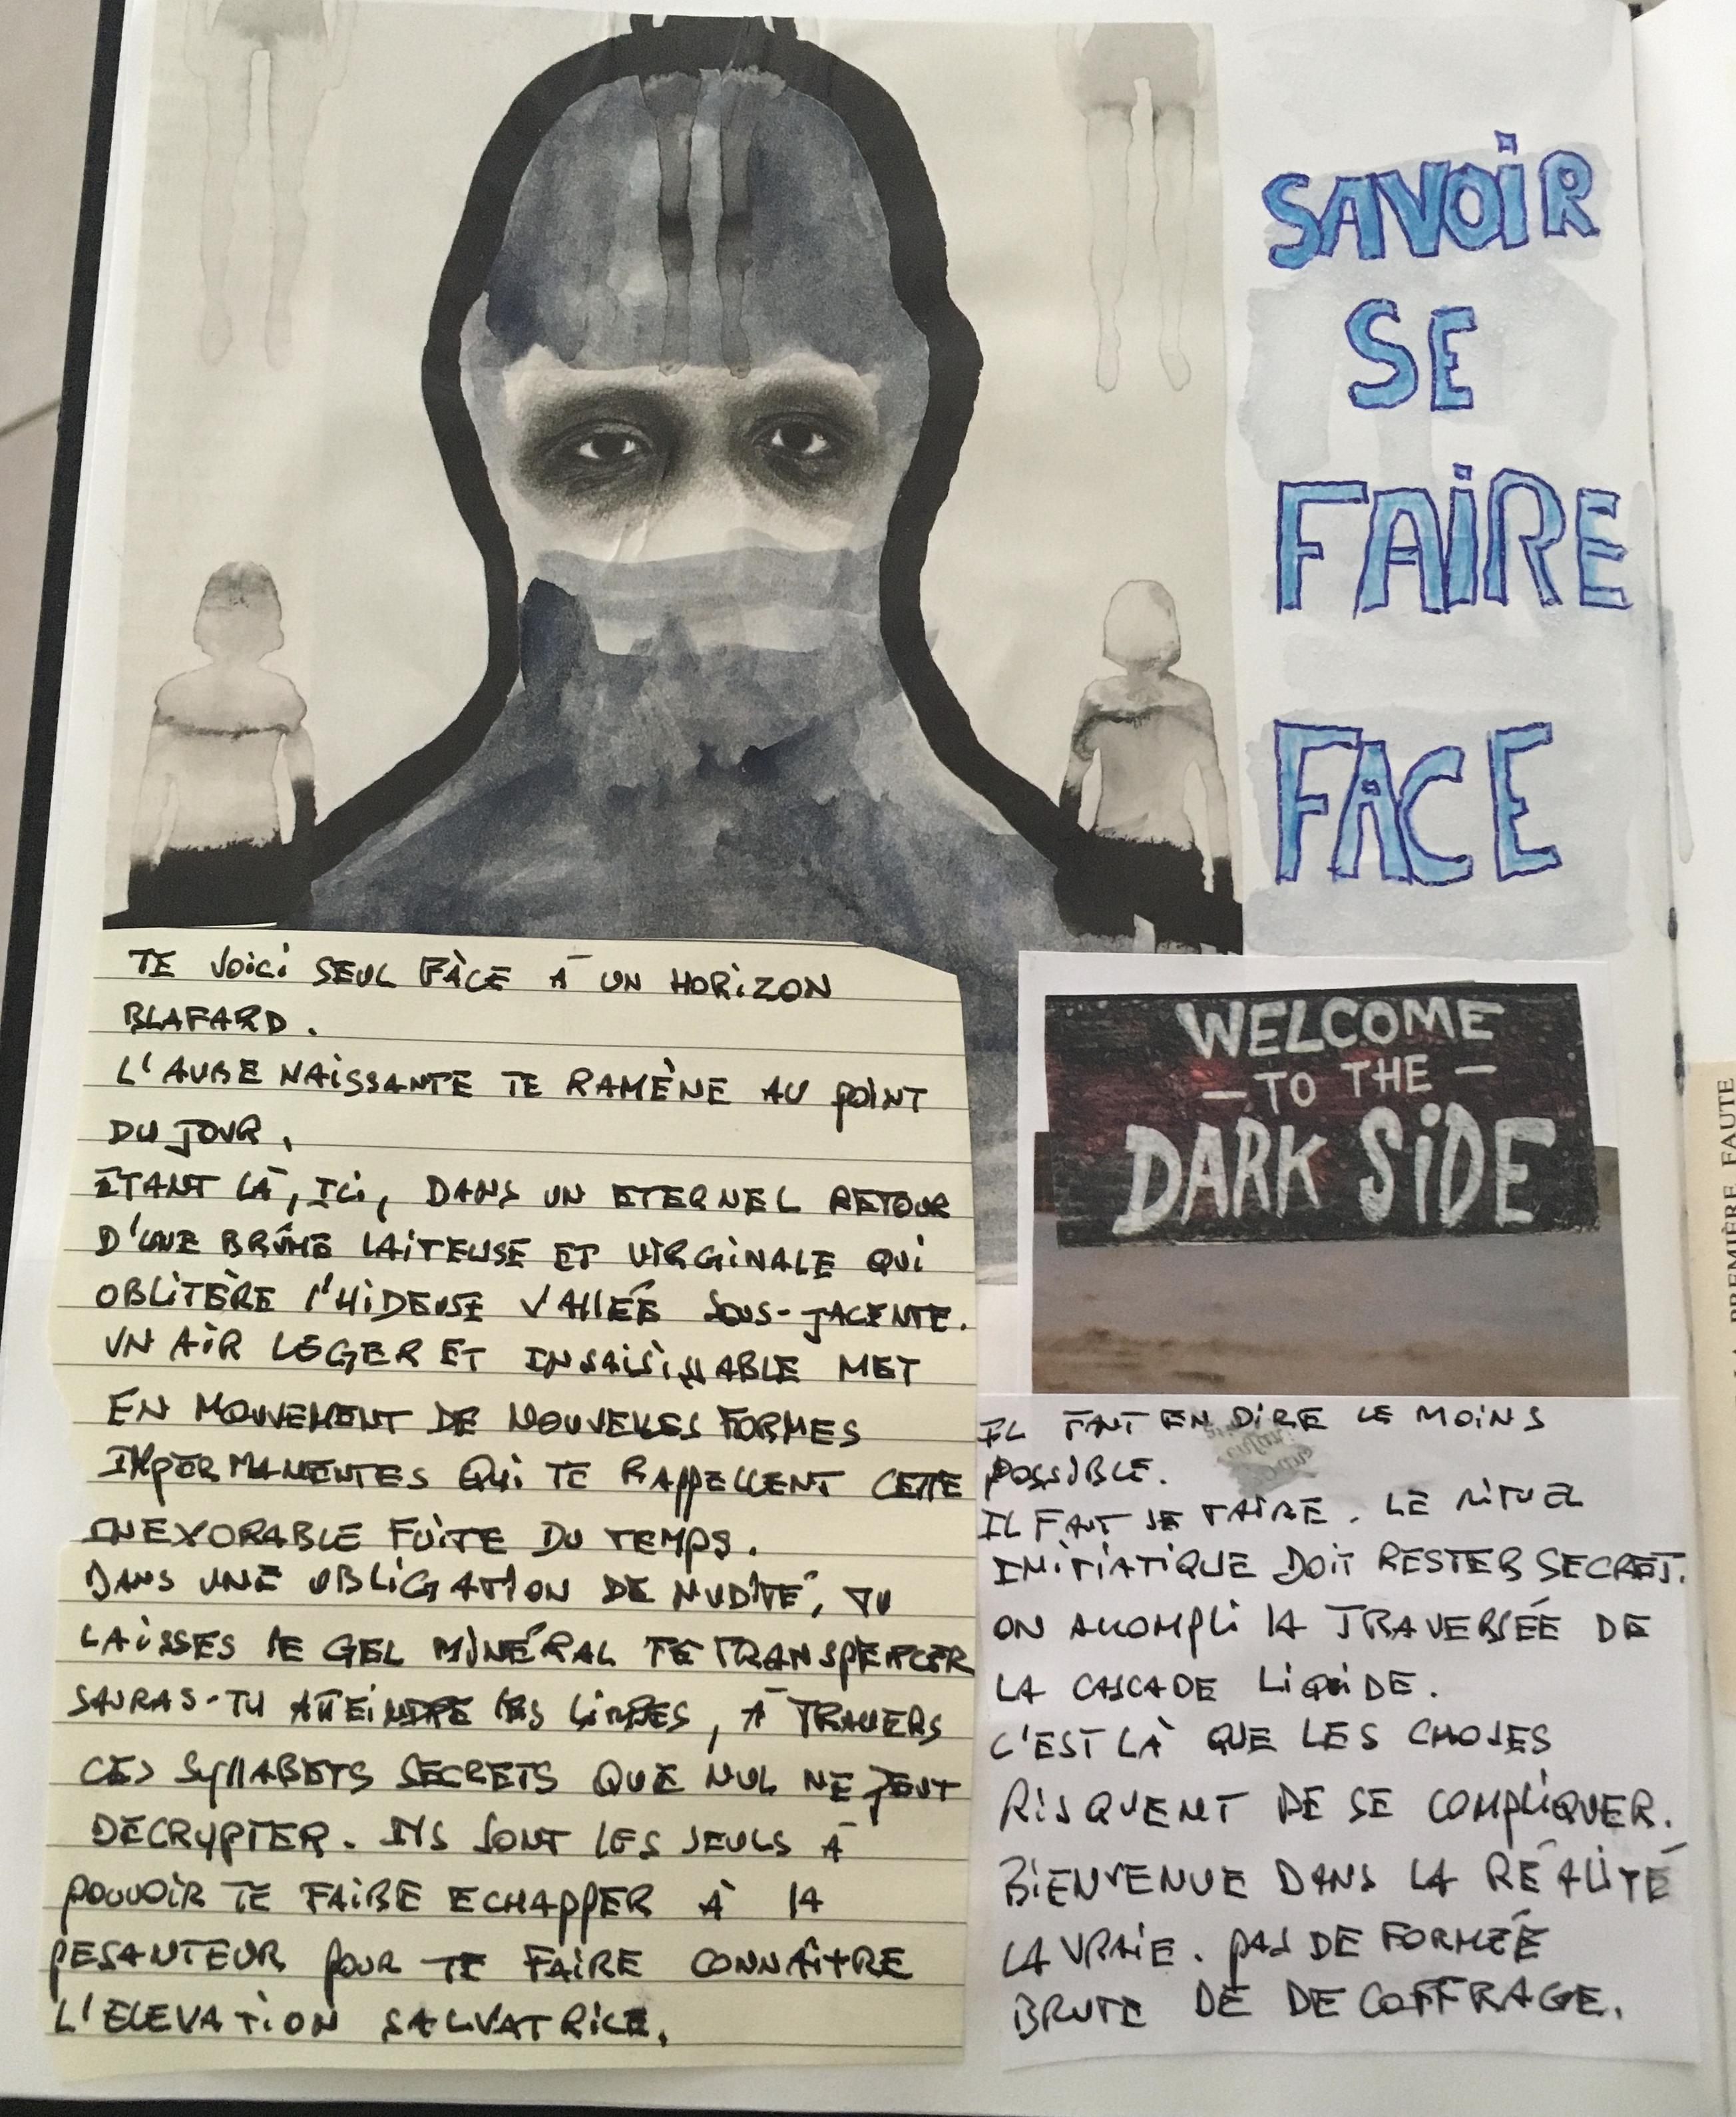 SAVOIR
SE
FAIRE
FACE
TE VOICI SEUL FÀCE À UN HORIZON
BLAFARD.
L'AUBE NAISSANTE TE RAMÈNE AU POINT
DU JOUR,
ÉTANT LÀ, ICI, DANS UN ETERNEL RETOUR
D'UNE BRÛME LAITEUSE ET VIRGINALE QUI
OBLITÈRE l'HIDEUSE VALLÉE SOUS-JACENTE.
UN AIR LEGER ET INSAISISSABLE MET
EN MOUVEMENT DE NOUVELLES FORMES
IMPERMANENTES QUI TE RAPPELLENT CETTE
INEXORABLE FUITE DU TEMPS.
DANS UNE OBLIGATION DE NUDITÉ, TU
LAISSES LE GEL MINÉRAL TE TRANSPERCER
SAURAS-TU ATTEINDRE LES LIMBES, À TRAVERS
CES SYLLABETS SECRETS QUE NUL NE PEUT
DECRYPTER. ILS SONT LES SEULS À
POUVOIR TE FAIRE ECHAPPER À LA
PESANTEUR POUR TE FAIRE CONNAÎTRE
L'ELEVATION SALVATRICE.
WELCOME
- TO THE -
DARK SIDE
IL FAUT EN DIRE LE MOINS
POSSIBLE.
IL FAUT SE TAIRE. LE RITUEL
INITIATIQUE DOIT RESTER SECRET.
ON ACCOMPLI LA TRAVERSÉE DE
LA CASCADE LIQUIDE.
C'EST LÀ QUE LES CHOSES
RISQUENT DE SE COMPLIQUER.
BIENVENUE DANS LA RÉALITÉ
LA VRAIE. PAS DE FORMÉE
BRUTE DE DECOFFRAGE.
PREMIÈRE FAUTE